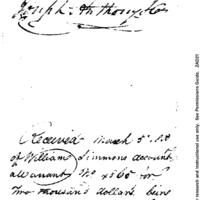 Joseph Anthony & Co
Received March 5th
of William Simmons account
a Warrant No for
Two thousand dollars being
research and instructional use only. See Permissions Guide. JA021